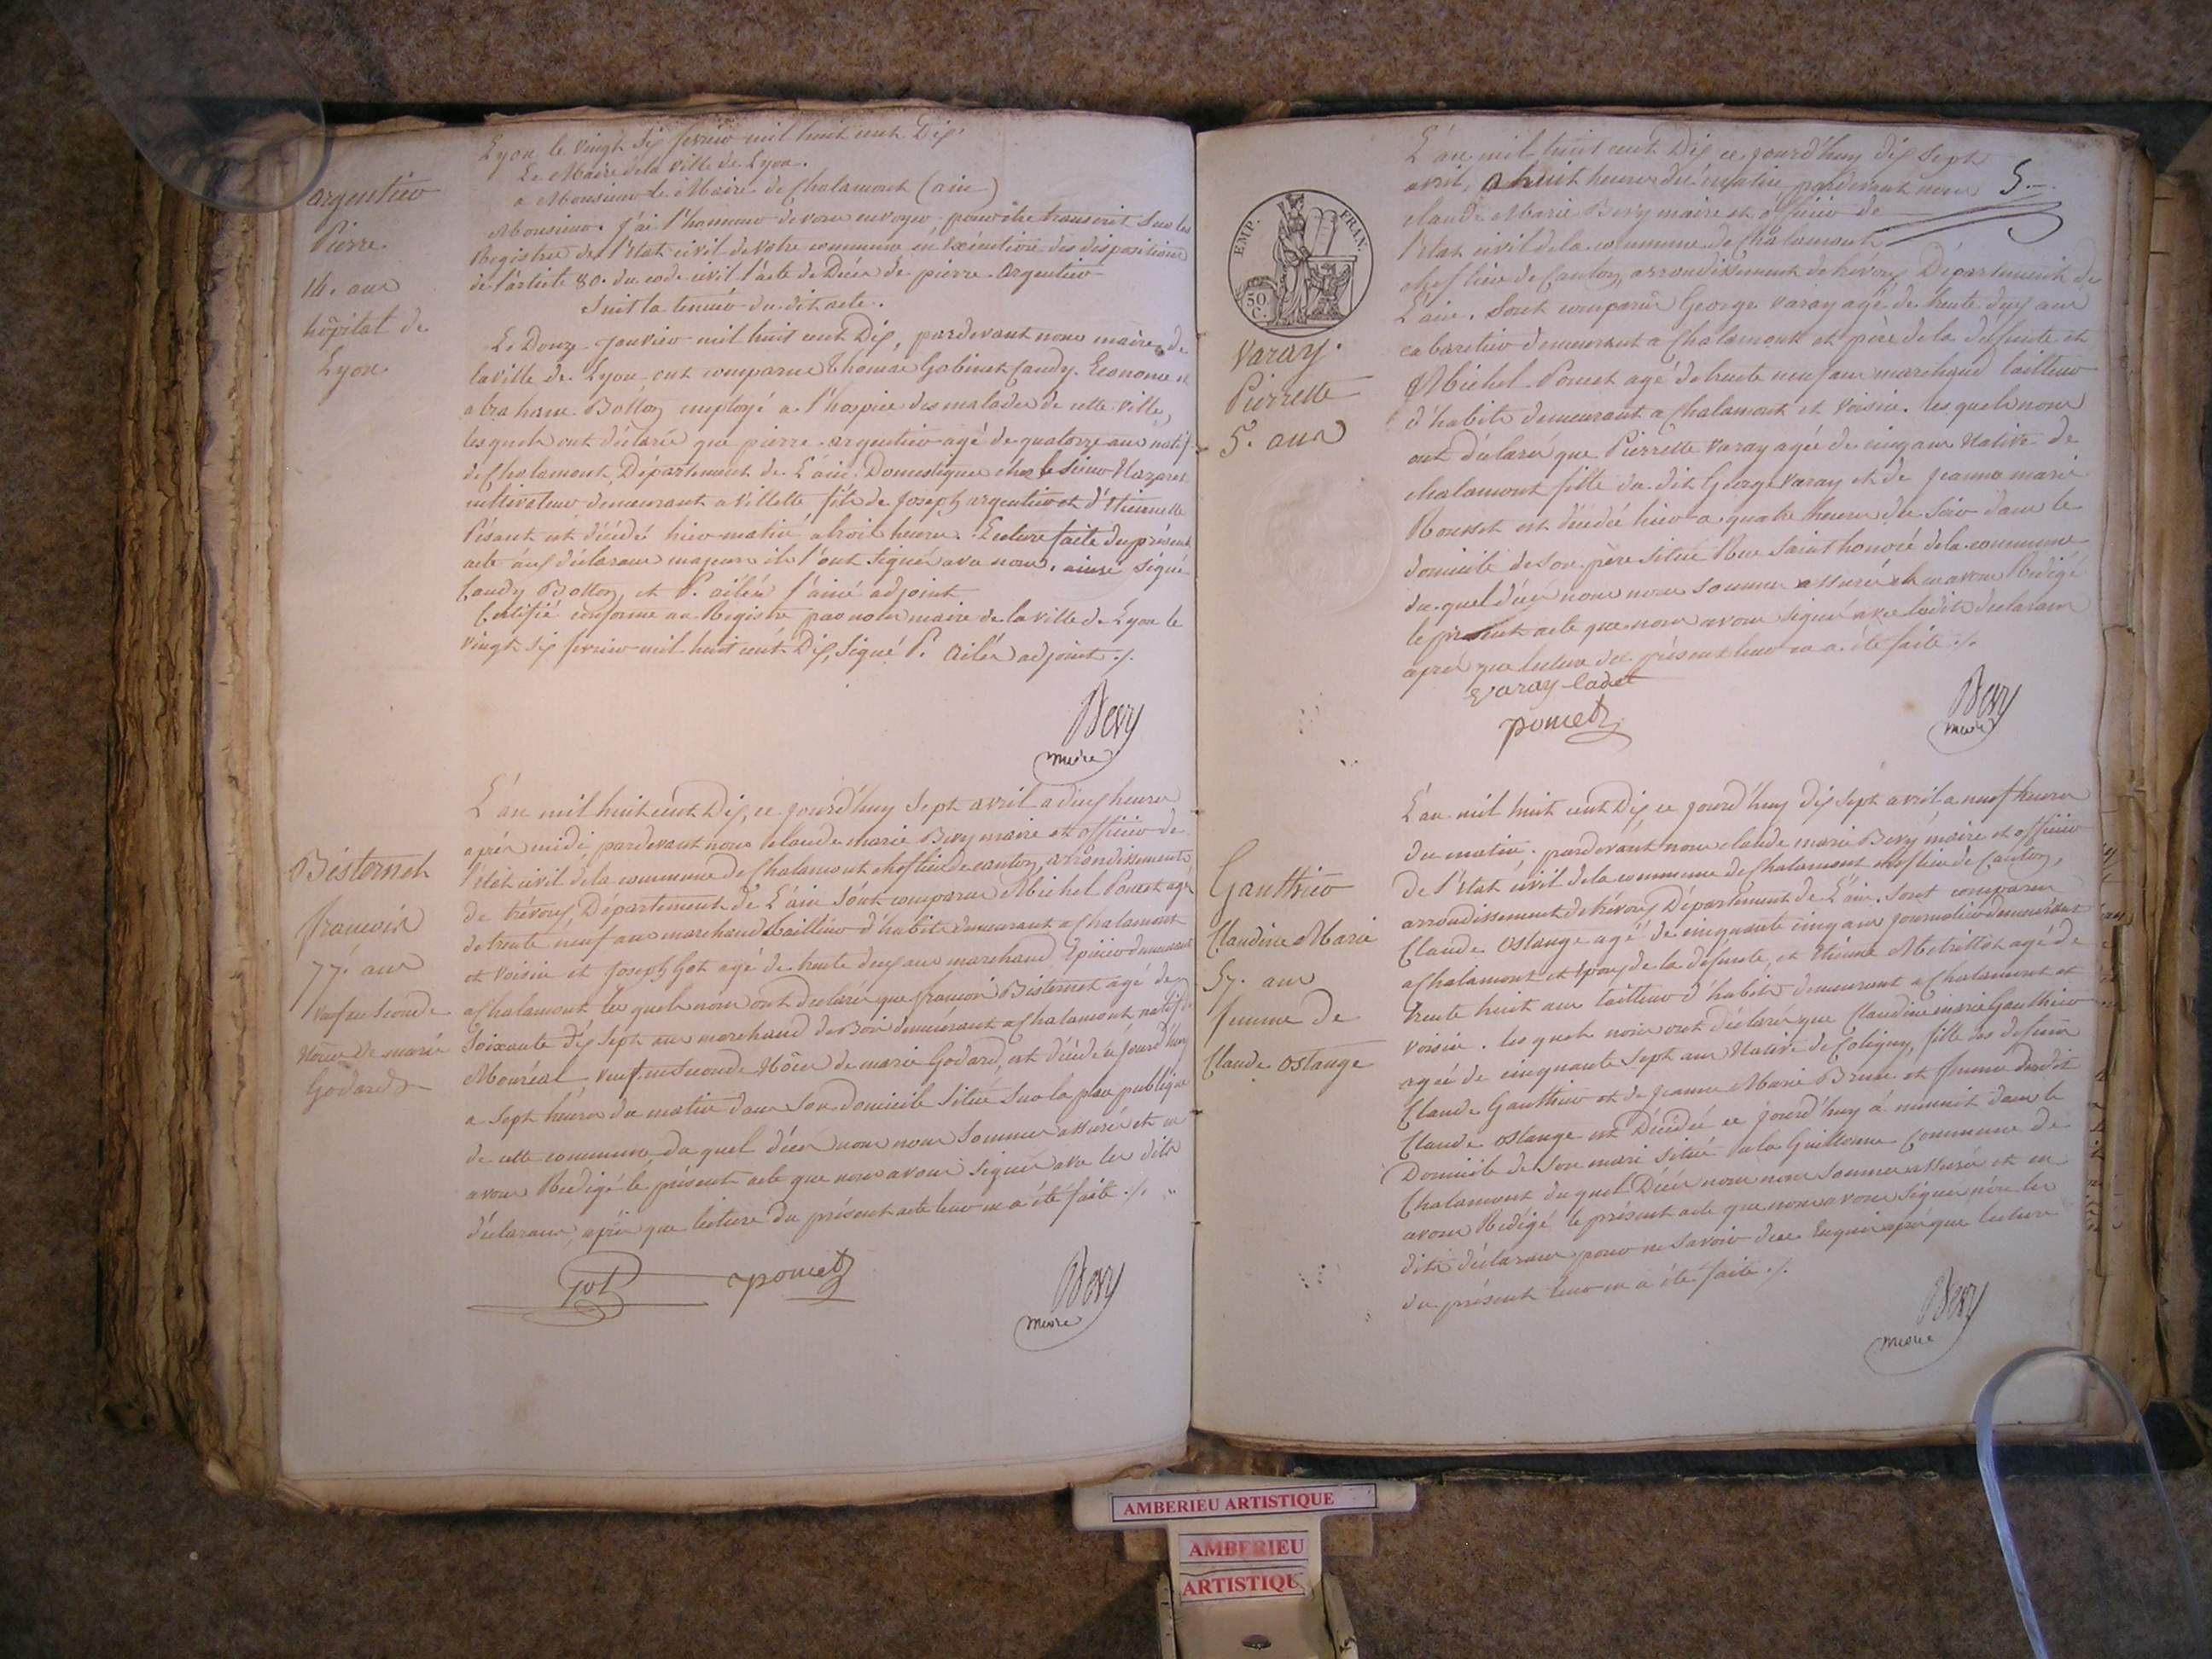 Lyon le vingt six fevrier mil huit cent Dix.
Le Maire de la Ville de Lyon.
a Monsieur le Maire de Chalamont (ain)
Monsieur. J'ai l'honneur de vous envoyer pour être transcrit sur les
Registres de l'état civil de votre commune en Exécution des dispositions
de l'article 80. du code civil l'acte de Décès de pierre argentier
Suit la teneur du dit acte.
argentier
Pierre
14. ans
hôpital de
Lyon.
Le Douze janvier mil huit cent Dix, pardevant nous maire de
la ville de Lyon ont comparu Thomas Gobinet Caudy. Econome et
abraham Botton employé a l'hospice des malades de cette ville,
lesquels ont déclaré que pierre argentier agé de quatorze ans natif
de Chalamont, Département de L'ain. Domestique chez le sieur Nazaret
cultivateur demeurant a Villette fils de Joseph argentier et d'Etiennette
Pisant est décédé hier matin a trois heures. Lecture faite du présent
acte aux déclarans majeurs ils l'ont signé avec nous. ainsi signé
Caudy Botton, et P. ailér l'ainé adjoint
Certifié conforme au Registre par nous maire de la ville de Lyon le
vingt six fevrier mil huit cent Dix, signé P. Ailér adjoint ./.
Bevy
maire
Bisternet
francois
77. ans
veuf en seconde
Nôces de marie
Godard
L'an mil huit cent Dix, ce jourd'huy sept avril a deux heures
après midi pardevant nous claude marie Bevy maire et officier de
l'état civil de la commune de Chalamont chef lieu de canton, arrondissement
de trévoux, Département de L'ain sont comparu Michel Poncet agé
de trente neuf ans marchand tailleur d'habits demeurant a Chalamont
et voisin et Joseph Got agé de trente deux ans marchand Epicier demeurant
a Chalamont les quels nous ont déclaré que francois Bisternet agé de
soixante dix sept ans marchand de Bois demeurant a Chalamont natif de
Monréal, veuf en seconde Nôces de marie Godard, est décédé ce jourd'huy
a sept heures du matin dans son domicile situé sur la place publique
de cette commune, du quel décès nous nous sommes assurés et en
avons Rédigé le présent acte que nous avons signés avec les dits
déclarans, après que lecture du présent acte leur en a été faite ./.
Got
poncet
Bevy
maire
L'an mil huit cent Dix ce jourd'huy dix sept
avril, a huit heures du matin pardevant nous
claude Marie Bevy maire et officier de
l'état civil de la commune de Chalamont
chef lieu de Canton, arrondissement de trévoux Département de
L'ain. Sont comparus George Varay agé de trente deux ans
cabaretier demeurant a Chalamont et père de la deffunte et
Michel Poncet agé de trente neuf ans marchand tailleur
d'habits demeurant a Chalamont et voisin. les quels nous
ont déclaré que Pierrette Varay agée de cinq ans Native de
chalamont fille du dit George Varay et de Jeanne marie
Rousset est décédée hier a quatre heures du soir dans le
domicile de son père situé Rue Saint honoré de la commune
du quel décès nous nous sommes assurés et en avons Rédigé
le présent acte que nous avons signé avec lesdits declarans
après que lecture du présent leur en a été faite ./.
5.
EMP. FRAN.
50
C.
Varay.
Pierrette
5. ans
Varay Cadet
poncet
Bevy
maire
Gauthier
Claudine Marie
57. ans
femme de
Claude Oslange
L'an mil huit cent Dix, ce jourd'huy dix sept avril a neuf heures
du matin, pardevant nous claude marie Bevy maire et officier
De l'état civil de la commune de Chalamont chef lieu de Canton,
arrondissement de trévoux Département de L'ain. Sont comparu
Claude Oslange agé de cinquante cinq ans journalier demeurant
a Chalamont et Epoux de la défunte, et Etienne agé de
trente huit ans tailleur d'habits demeurant a Chalamont et
voisin. les quels nous ont déclaré que Claudine marie Gauthier
agée de cinquante sept ans Native de Coligny, fille des defunts
Claude Gauthier et de Jeanne Marie Brun et femme du dit
Claude Oslange est Décédée ce jourd'huy a minuit dans le
Domicile de son mari situé a la Guillotière Commune de
Chalamont du quel Décès nous nous sommes assurés et en
avons Rédigé le présent acte que nous avons signé non les
dits déclarans pour ne savoir de ce Enquis après que lecture
du présent leur en a été faite ./.
Bevy
maire
AMBERIEU ARTISTIQUE
AMBERIEU
ARTISTIQUE